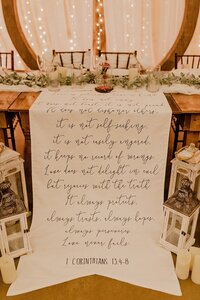 does not
It does not dishonor others
it is not self-seeking,
it is not easily angered,
it keeps no record of wrongs.
Love does not delight in evil
but rejoices with the truth
It always protects,
always trusts, always hopes,
always perseveres
Love never fails.
1 CORINTHIANS 13:4-8